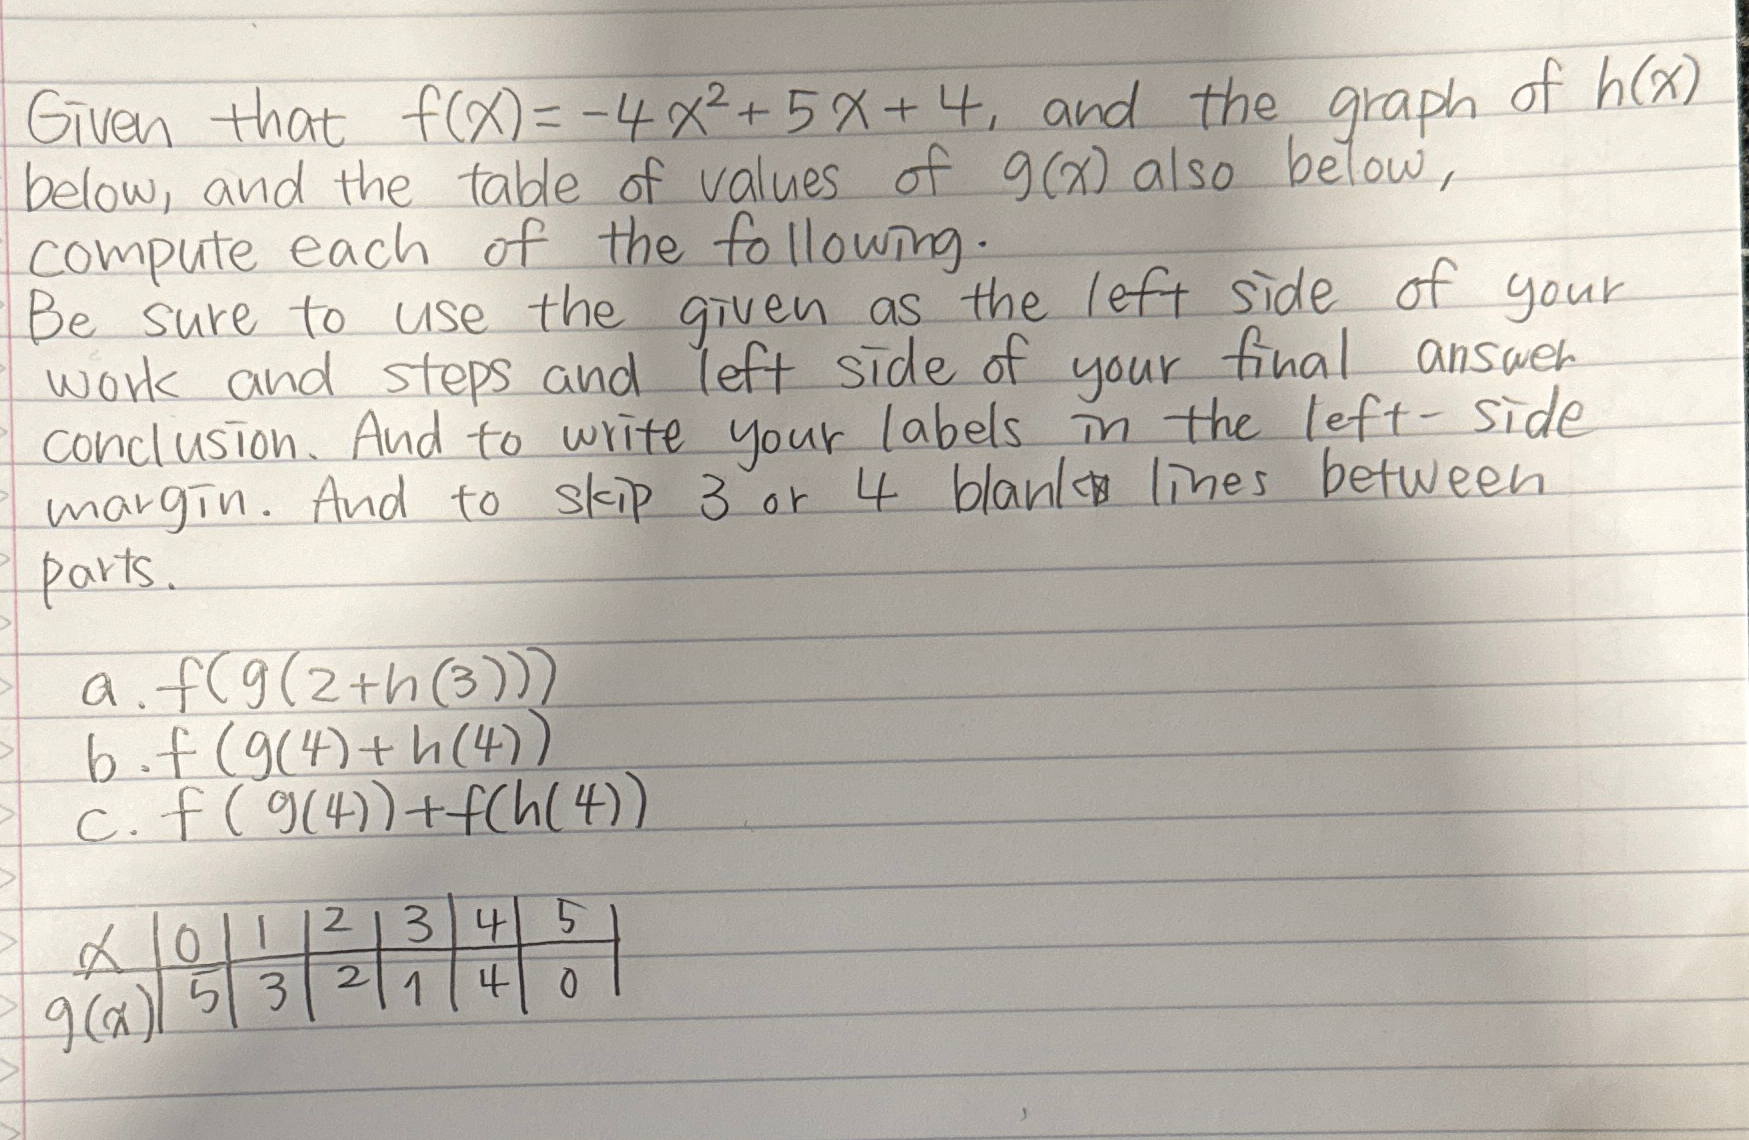 Given that f(x)=-4x²+5x+4, and the graph of h(x)
below, and the table of values of g(x) also below,
compute each of the following.
Be sure to use the given as the left side of your
work and steps and left side of your final answer
conclusion. And to write your labels in the left-side
margin. And to skip 3 or 4 blank lines between
parts.
a. f(g(2+h(3)))
b. f(g(4)+h(4))
c. f(g(4))+f(h(4))
x | 0 | 1 | 2 | 3 | 4 | 5 |
g(x) | 5 | 3 | 2 | 1 | 4 | 0 |